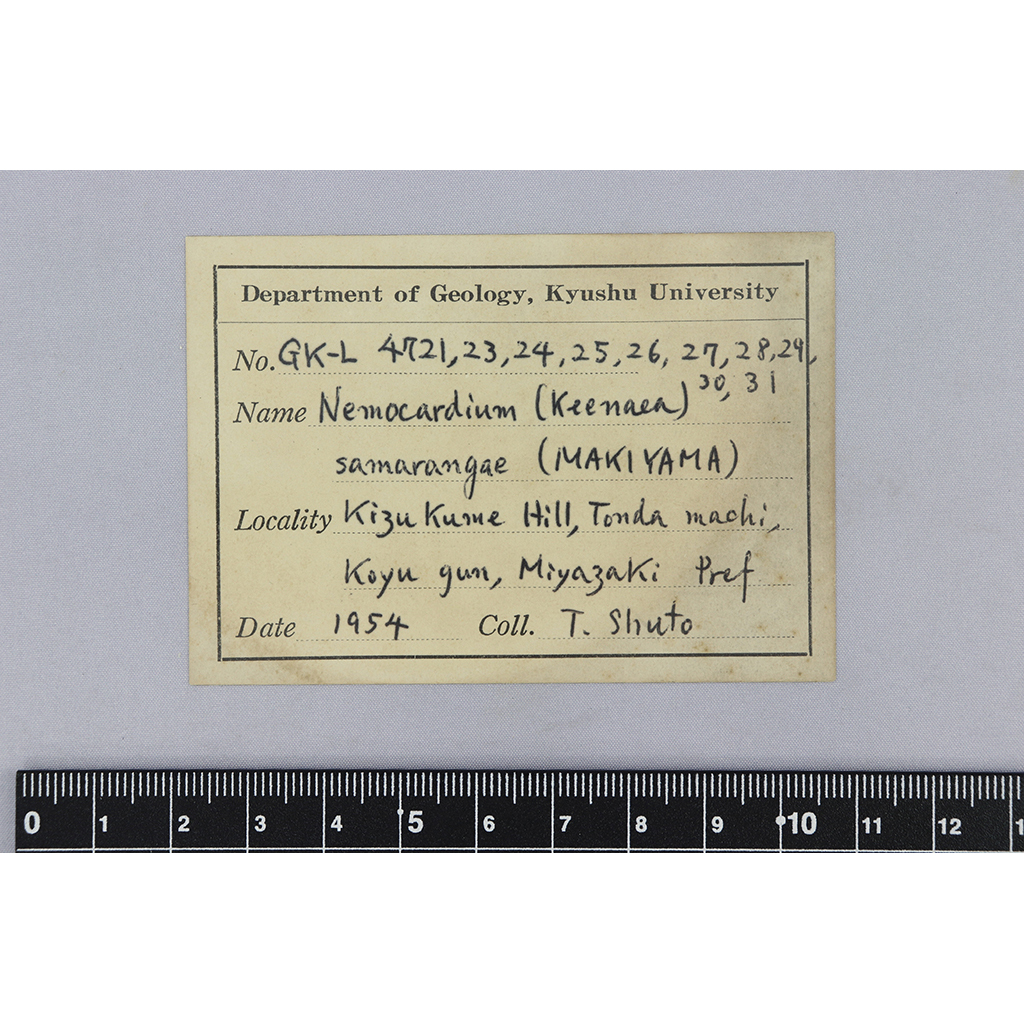 Department of Geology, Kyushu University
No. GK-L 4721, 23, 24, 25, 26, 27, 28, 29,
30, 31
Name Nemocardium (Keenaea)
samarangae (MAKIYAMA)
Locality Kizu Kume Hill, Tonda machi,
Koyu gun, Miyazaki Pref
Date 1954 Coll. T. Shuto
0 1 2 3 4 5 6 7 8 9 10 11 12